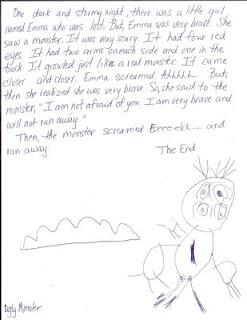 One dark and stormy night, there was a little girl
named Emma who was lost. But, Emma was very brave. She
saw a monster. It was very scary. It had four red
eyes. It had two arms on each side and one in the
back. It growled just like a real monster. It came
closer and closer. Emma screamed Ahhhhh... But,
then she realized she was very brave. So, she said to the
monster, "I am not afraid of you. I am very brave and
will not run away."
Then, the monster screamed Eeeeekk.... and
ran away.
The End
Ugly Monster